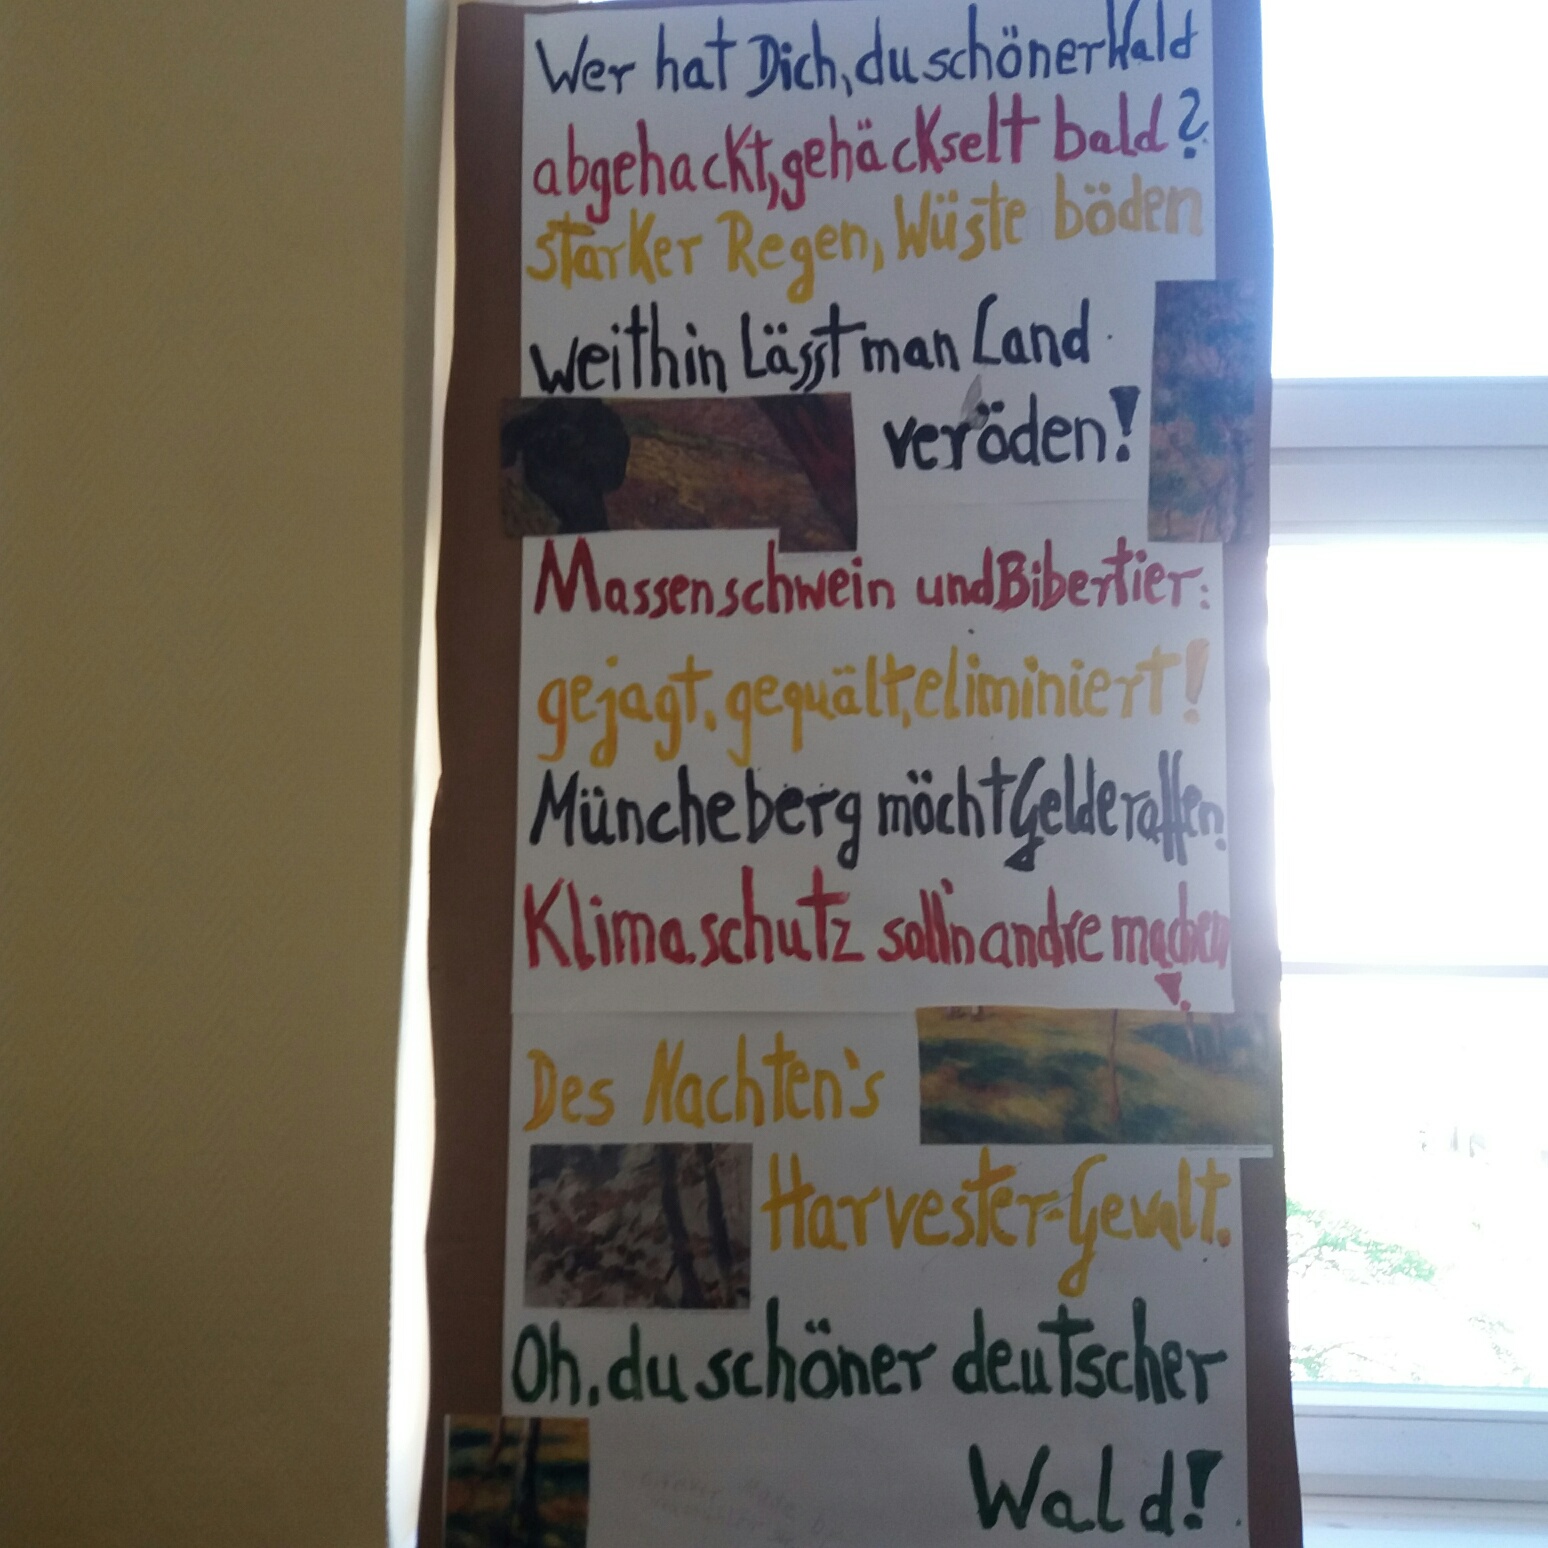 Wer hat Dich, du schöner Wald
abgehackt, gehäckselt bald?
starker Regen, Wüste böden
weithin Lässt man Land
veröden!
Massenschwein und Bibertier:
gejagt, gequält, eliminiert!
Müncheberg möcht Gelde raffen.
Klimaschutz soll'n andre machen
!
Des Nachten's
Harvester-Gewalt.
Oh, du schöner deutscher
Wald!